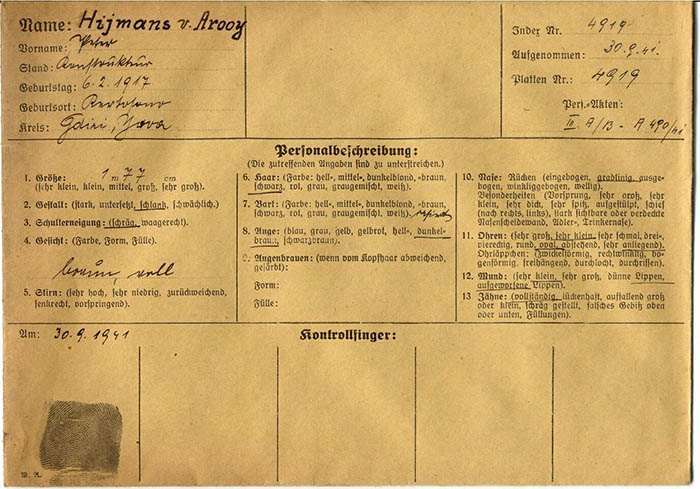 Name: Hijmans v. Arooy
Vorname: Peter
Stand: Konstrukteur
Geburtstag: 6.2.1917
Geburtsort: Kertosono
Kreis: Java
Index Nr. 4919
Aufgenommen: 30.9.41.
Platten Nr.: 4919
Pers.-Akten:
A/B - A 490/41
Personalbeschreibung:
(Die zutreffenden Angaben sind zu unterstreichen.)
1. Größe: 1 m 77 cm
(sehr klein, klein, mittel, groß, sehr groß).
2. Gestalt: (stark, untersetzt, schlank, schwächlich.)
3. Schulterneigung: (schräg, waagerecht).
4. Gesicht: (Farbe, Form, Fülle).
braun, voll
5. Stirn: (sehr hoch, sehr niedrig, zurückweichend,
senkrecht, vorspringend).
6. Haar: (Farbe: hell-, mittel-, dunkelblond, -braun,
schwarz, rot, grau, graugemischt, weiß).
7. Bart: (Farbe: hell-, mittel-, dunkelblond, -braun,
schwarz, rot, grau, graugemischt, weiß). rasiert
8. Auge: (blau, grau, gelb, gelbrot, hell-, dunkel-
braun, schwarzbraun).
9. Augenbrauen: (wenn vom Kopfhaar abweichend,
gefärbt):
Form:
Fülle:
10. Nase: Rücken (eingebogen, gradlinig, ausge-
bogen, winkliggebogen, wellig).
Besonderheiten (Vorsprung, sehr groß, sehr
klein, sehr dick, sehr spitz, aufgestülpt, schief
(nach rechts, links), stark sichtbare oder verdeckte
Nasenscheidewand, Adler-, Trinkernase).
11. Ohren: (sehr groß, sehr klein, sehr schmal, drei-,
viereckig, rund, oval, abstehend, sehr anliegend).
Ohrläppchen: (zwickelförmig, rechtwinklig, bo-
genförmig, freihängend, durchlocht, durchrissen).
12. Mund: (sehr klein, sehr groß, dünne Lippen,
aufgeworfene Lippen).
13. Zähne: (vollständig, lückenhaft, auffallend groß
oder klein, schräg gestellt, falsches Gebiß oben
oder unten, Füllungen).
Am: 30.9.1941
Kontrollfinger: